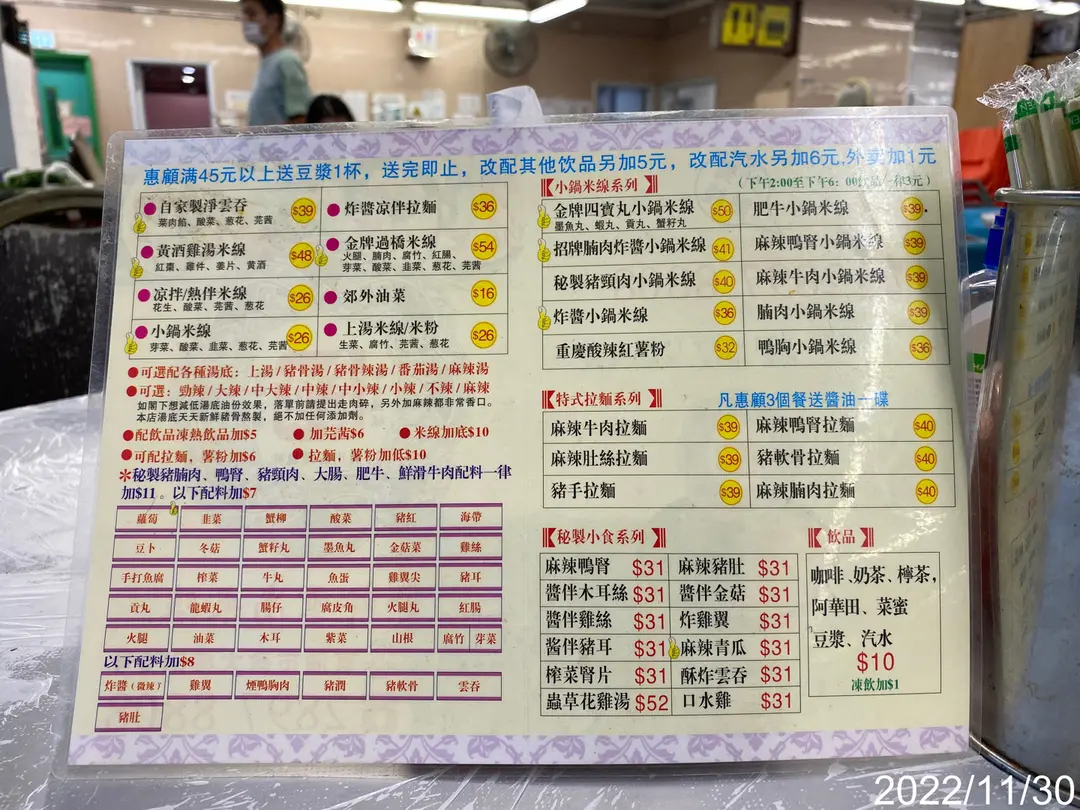 惠顧满45元以上送豆漿1杯，送完即止，改配其他饮品另加5元，改配汽水另加6元,外卖加1元
自家製淨雲吞 $39
菜肉餡、酸菜、葱花、芫茜
炸醬凉伴拉麵 $36
黃酒雞湯米線 $48
紅棗、雞件、姜片、黃酒
金牌過橋米線 $54
火腿、腩肉、腐竹、紅腸、
芽菜、酸菜、韭菜、葱花、芫茜
凉拌/熱伴米線 $26
花生、酸菜、芫茜、葱花
郊外油菜 $16
小鍋米線 $26
芽菜、酸菜、韭菜、葱花、芫茜
上湯米線/米粉 $26
生菜、腐竹、芫茜、葱花
可選配各種湯底：上湯/豬骨湯/豬骨辣湯/番茄湯/麻辣湯
可選：勁辣/大辣/中大辣/中辣/中小辣/小辣/不辣/麻辣
如閣下想減低湯底油份效果，落單前請提出走肉碎，另外加麻辣都非常香口。
本店湯底天天新鮮豬骨熬製，絕不加任何添加劑。
配飲品凍熱飲品加$5 加芫茜$6 米線加底$10
可配拉麵，薯粉加$6 拉麵，薯粉加低$10
*秘製豬腩肉、鴨腎、豬頸肉、大腸、肥牛、鮮滑牛肉配料一律
加$11。以下配料加$7
蘿蔔 韭菜 蟹柳 酸菜 豬紅 海帶
豆卜 冬菇 蟹籽丸 墨魚丸 金菇菜 雞絲
手打魚腐 榨菜 牛丸 魚蛋 雞翼尖 豬耳
貢丸 龍蝦丸 腸仔 腐皮角 火腿丸 紅腸
火腿 油菜 木耳 紫菜 山根 腐竹 芽菜
以下配料加$8
炸醬（微辣） 雞翼 煙鴨胸肉 豬潤 豬軟骨 雲吞
豬肚
小鍋米線系列
(下午2:00至下午6：00飲品一律3元)
金牌四寶丸小鍋米線 $50
墨魚丸、蝦丸、貢丸、蟹籽丸
肥牛小鍋米線 $39
招牌腩肉炸醬小鍋米線 $41
麻辣鴨腎小鍋米線 $39
秘製豬頸肉小鍋米線 $40
麻辣牛肉小鍋米線 $39
炸醬小鍋米線 $36
腩肉小鍋米線 $39
重慶酸辣紅薯粉 $32
鴨胸小鍋米線 $36
特式拉麵系列
凡惠顧3個餐送醬油一碟
麻辣牛肉拉麵 $39
麻辣鴨腎拉麵 $40
麻辣肚絲拉麵 $39
豬軟骨拉麵 $40
豬手拉麵 $39
麻辣腩肉拉麵 $40
秘製小食系列
麻辣鴨腎 $31 麻辣豬肚 $31
醬伴木耳絲 $31 醬伴金菇 $31
醬伴雞絲 $31 炸雞翼 $31
酱伴豬耳 $31 麻辣青瓜 $31
榨菜腎片 $31 酥炸雲吞 $31
蟲草花雞湯 $52 口水雞 $31
飲品
咖啡、奶茶、檸茶,
阿華田、菜蜜
豆漿、汽水
$10
凍飲加$1
2022/11/30